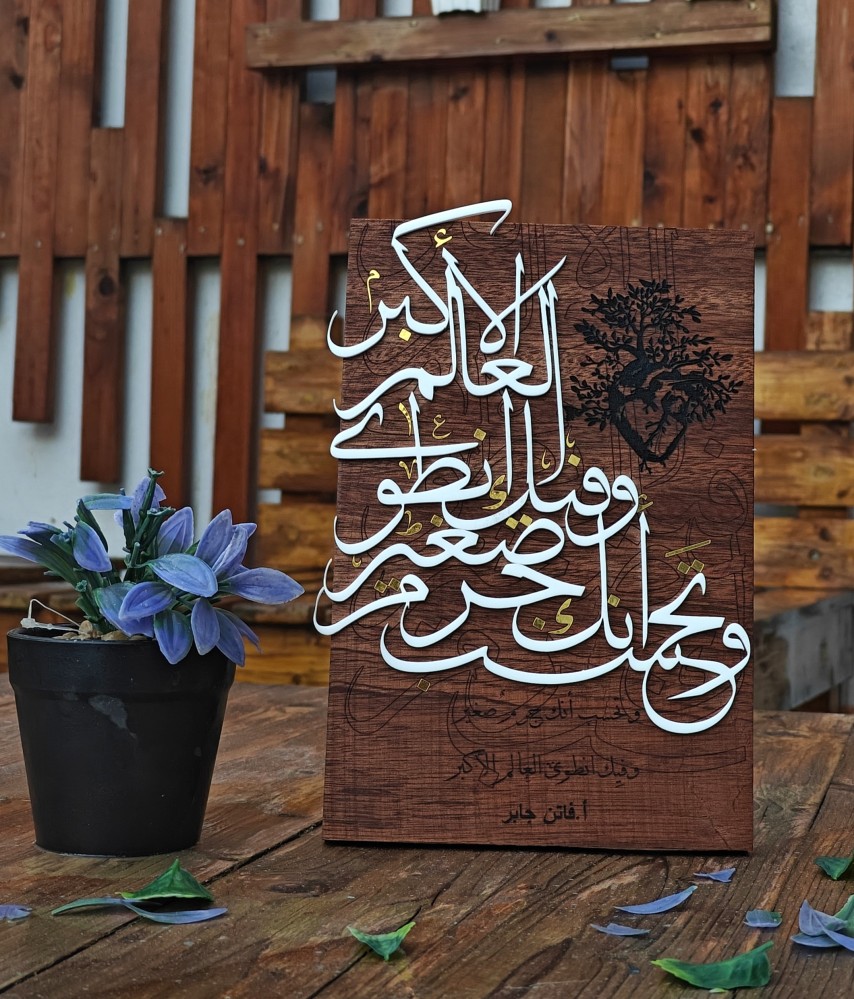 وتحسب أنك جرم صغير
وفيك انطوى العالم الأكبر
وتحسب أنك جرم صغير
وفيك انطوى العالم الأكبر
أ.فاتن جابر